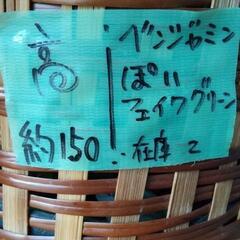 高 約150
ベンジャミン
ぽい
フェイクグリーン
在庫 2